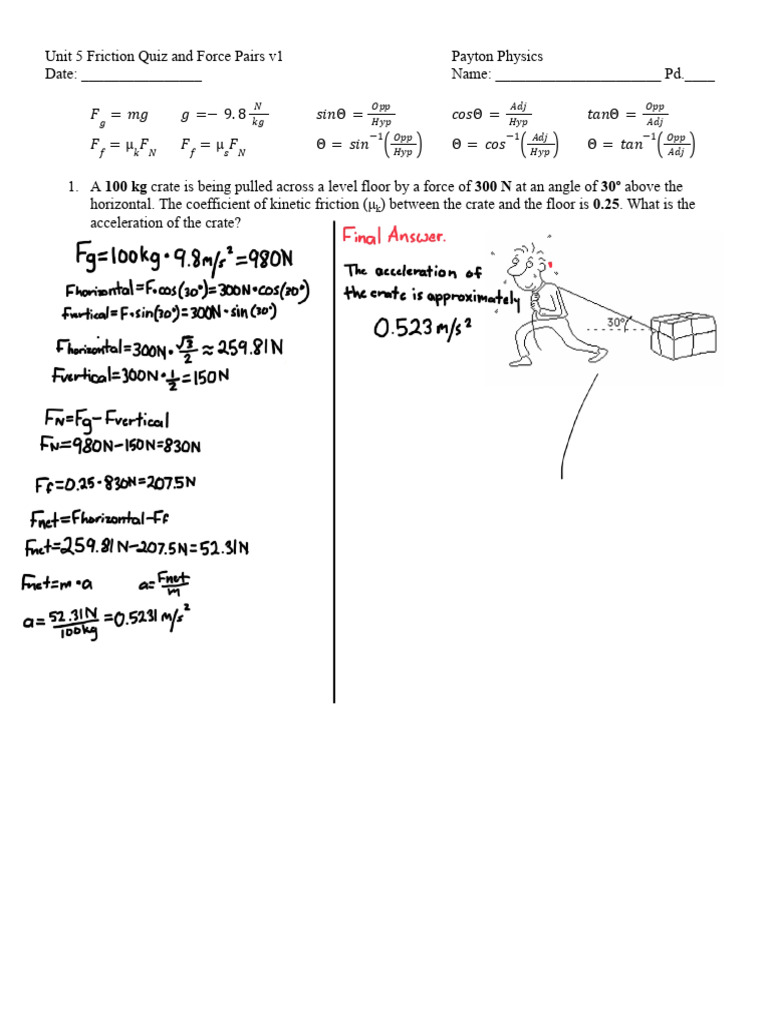 Unit 5 Friction Quiz and Force Pairs v1 Payton Physics
Date: ________________ Name: ______________________ Pd.____
F_g = mg g = − 9.8 N/kg sinΘ = Opp/Hyp cosΘ = Adj/Hyp tanΘ = Opp/Adj
F_f = μ_k F_N F_f = μ_s F_N Θ = sin⁻¹(Opp/Hyp) Θ = cos⁻¹(Adj/Hyp) Θ = tan⁻¹(Opp/Adj)
1. A 100 kg crate is being pulled across a level floor by a force of 300 N at an angle of 30º above the
horizontal. The coefficient of kinetic friction (μ_k) between the crate and the floor is 0.25. What is the
acceleration of the crate?
Fg=100kg•9.8m/s²=980N
Fhorizontal=F•cos(30°)=300N•cos(30°)
Fvertical=F•sin(30°)=300N•sin(30°)
Fhorizontal=300N•√3/2≈259.81N
Fvertical=300N•1/2=150N
FN=Fg-Fvertical
FN=980N-150N=830N
Ff=0.25•830N=207.5N
Fnet=Fhorizontal-Ff
Fnet=259.81N-207.5N=52.31N
Fnet=m•a a=Fnet/m
a=52.31N/100kg=0.5231m/s²
Final Answer.
The acceleration of
the crate is approximately
0.523m/s²
30°